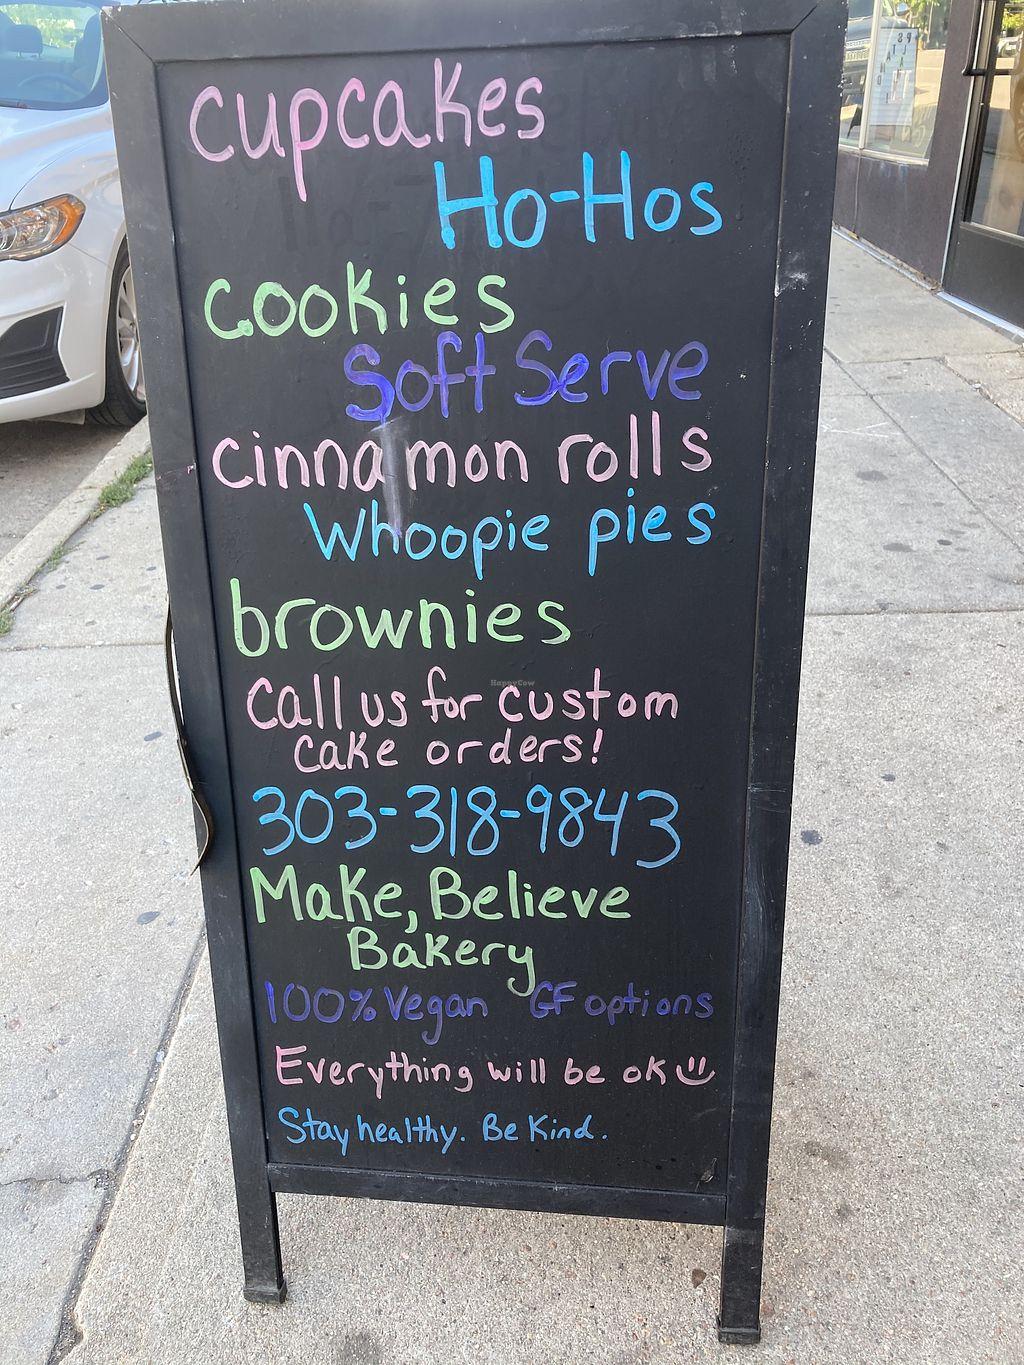 cupcakes
Ho-Hos
cookies
Soft Serve
cinnamon rolls
Whoopie pies
brownies
Call us for custom
cake orders!
303-318-9843
Make, Believe
Bakery
100% Vegan GF options
Everything will be ok
Stay healthy. Be Kind.
HappyCow